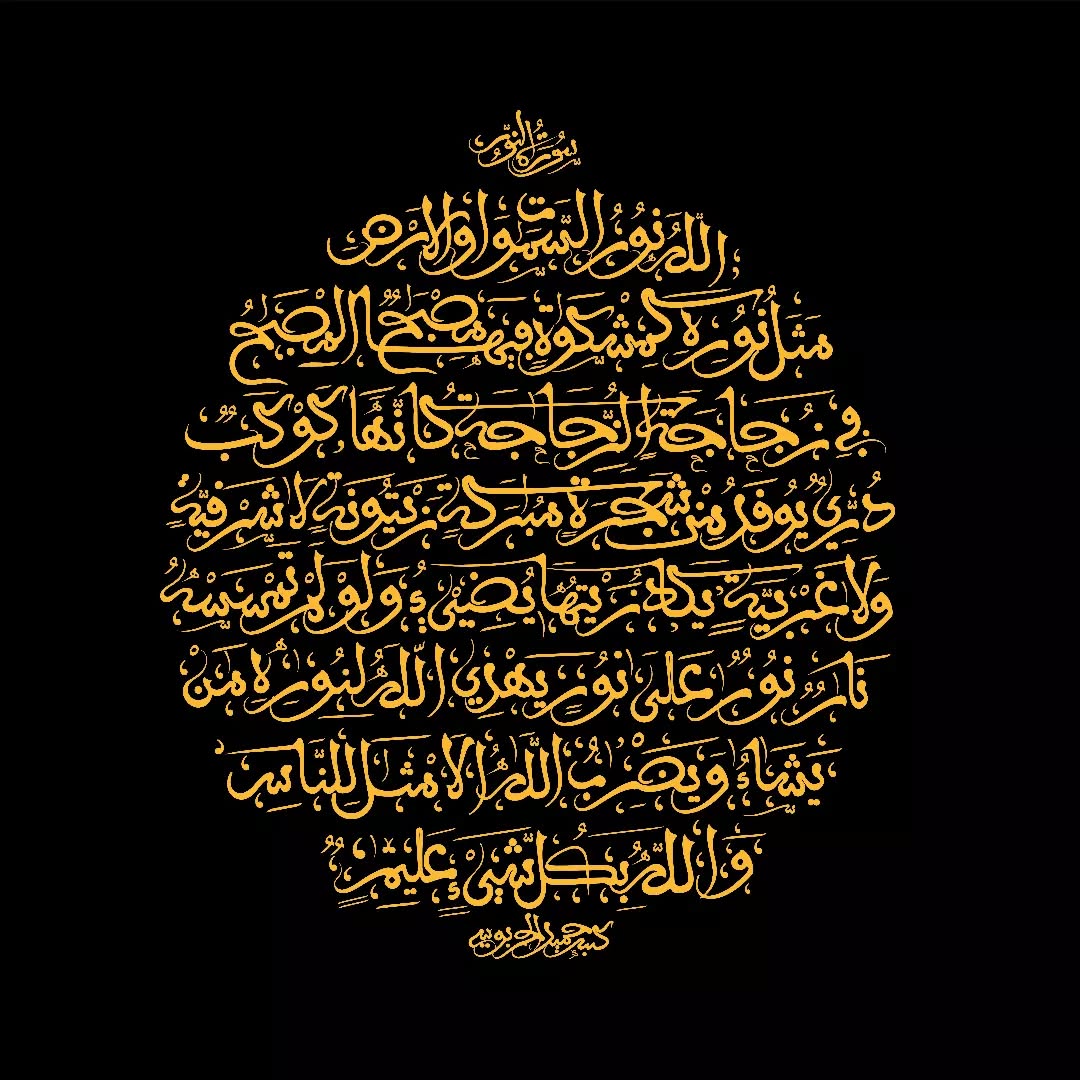 سورة النور
الله نور السموت والارض
مثل نوره كمشكوة فيها مصبح المصبح
في زجاجة الزجاجة كانها كوكب
دري يوقد من شجرة مبركة زيتونة لا شرقية
ولا غربية يكاد زيتها يضيء ولو لم تمسسه
نار نور على نور يهدي الله لنوره من
يشاء ويضرب الله الامثل للناس
والله بكل شيء عليم
كتبه